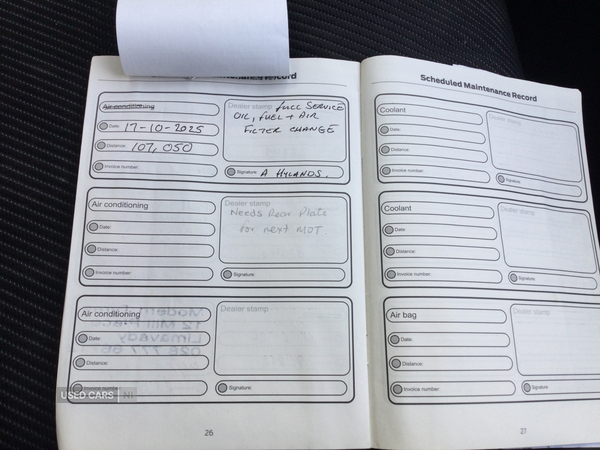 Scheduled Maintenance Record
Air conditioning
Date: 17-10-2025
Distance: 107,050
Invoice number:
Dealer stamp FULL SERVICE
OIL, FUEL + AIR
FILTER CHANGE
Signature: A HYLANDS.
Air conditioning
Date:
Distance:
Invoice number:
Dealer stamp
Needs Rear Plate
for next MOT
Signature:
Air conditioning
Date:
Distance:
Invoice number:
Dealer stamp
Signature:
USED CARS
26
Scheduled Maintenance Record
Coolant
Date:
Distance:
Invoice number:
Dealer stamp
Signature:
Coolant
Date:
Distance:
Invoice number:
Dealer stamp
Signature:
Air bag
Date:
Distance:
Invoice number:
Dealer stamp
Signature:
27